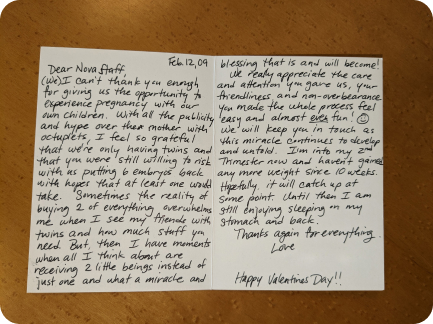 Feb. 12, 09
Dear Nova Staff,
(We) I can't thank you enough
for giving us the opportunity to
experience pregnancy with our
own children. With all the publicity
and hype over then mother with
octuplets, I feel so grateful
that we're only having twins and
that you were still willing to risk
with us putting 6 embryos back
with hopes that at least one would
take. Sometimes the reality of
buying 2 of everything overwhelms
me when I see my friends with
twins and how much stuff you
need. But, then I have moments
when all I think about are
receiving 2 little beings instead of
just one and what a miracle and
blessing that is and will become!
We really appreciate the care
and attention you gave us, your
friendliness and non-overbearance.
You made the whole process feel
easy and almost even fun! ☺
We will keep you in touch as
this miracle continues to develop
and untold. I'm into my 2nd
Trimester now and haven't gained
any more weight since 10 weeks.
Hopefully, it will catch up at
some point. Until then I am
still enjoying sleeping on my
stomach and back.
Thanks again for everything.
Love
Happy Valentines Day!!